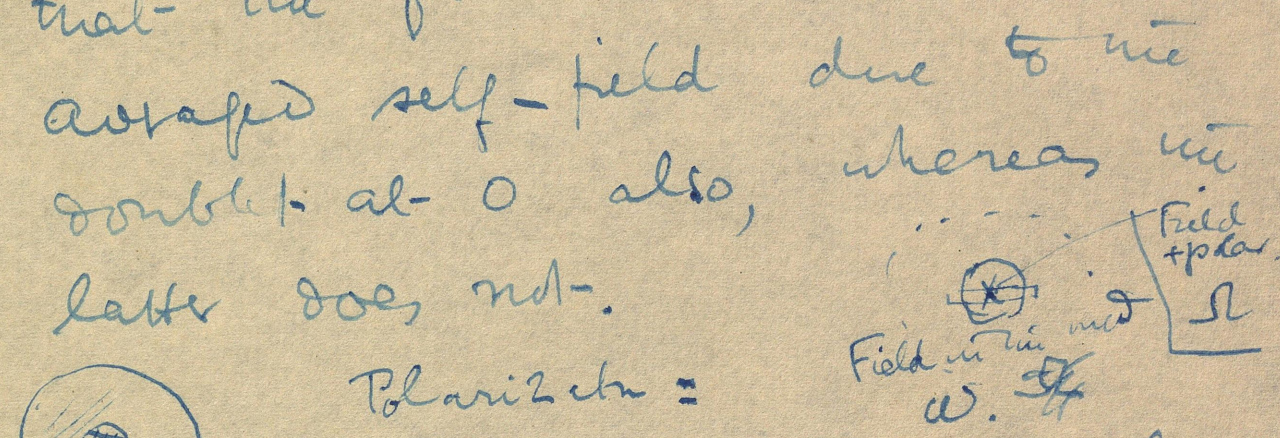 that the
averaged self-field due to the
doublet at O also, whereas the
latter does not.
Field
+polar.
Ω
Field in the med
ω.
Polarizatn =